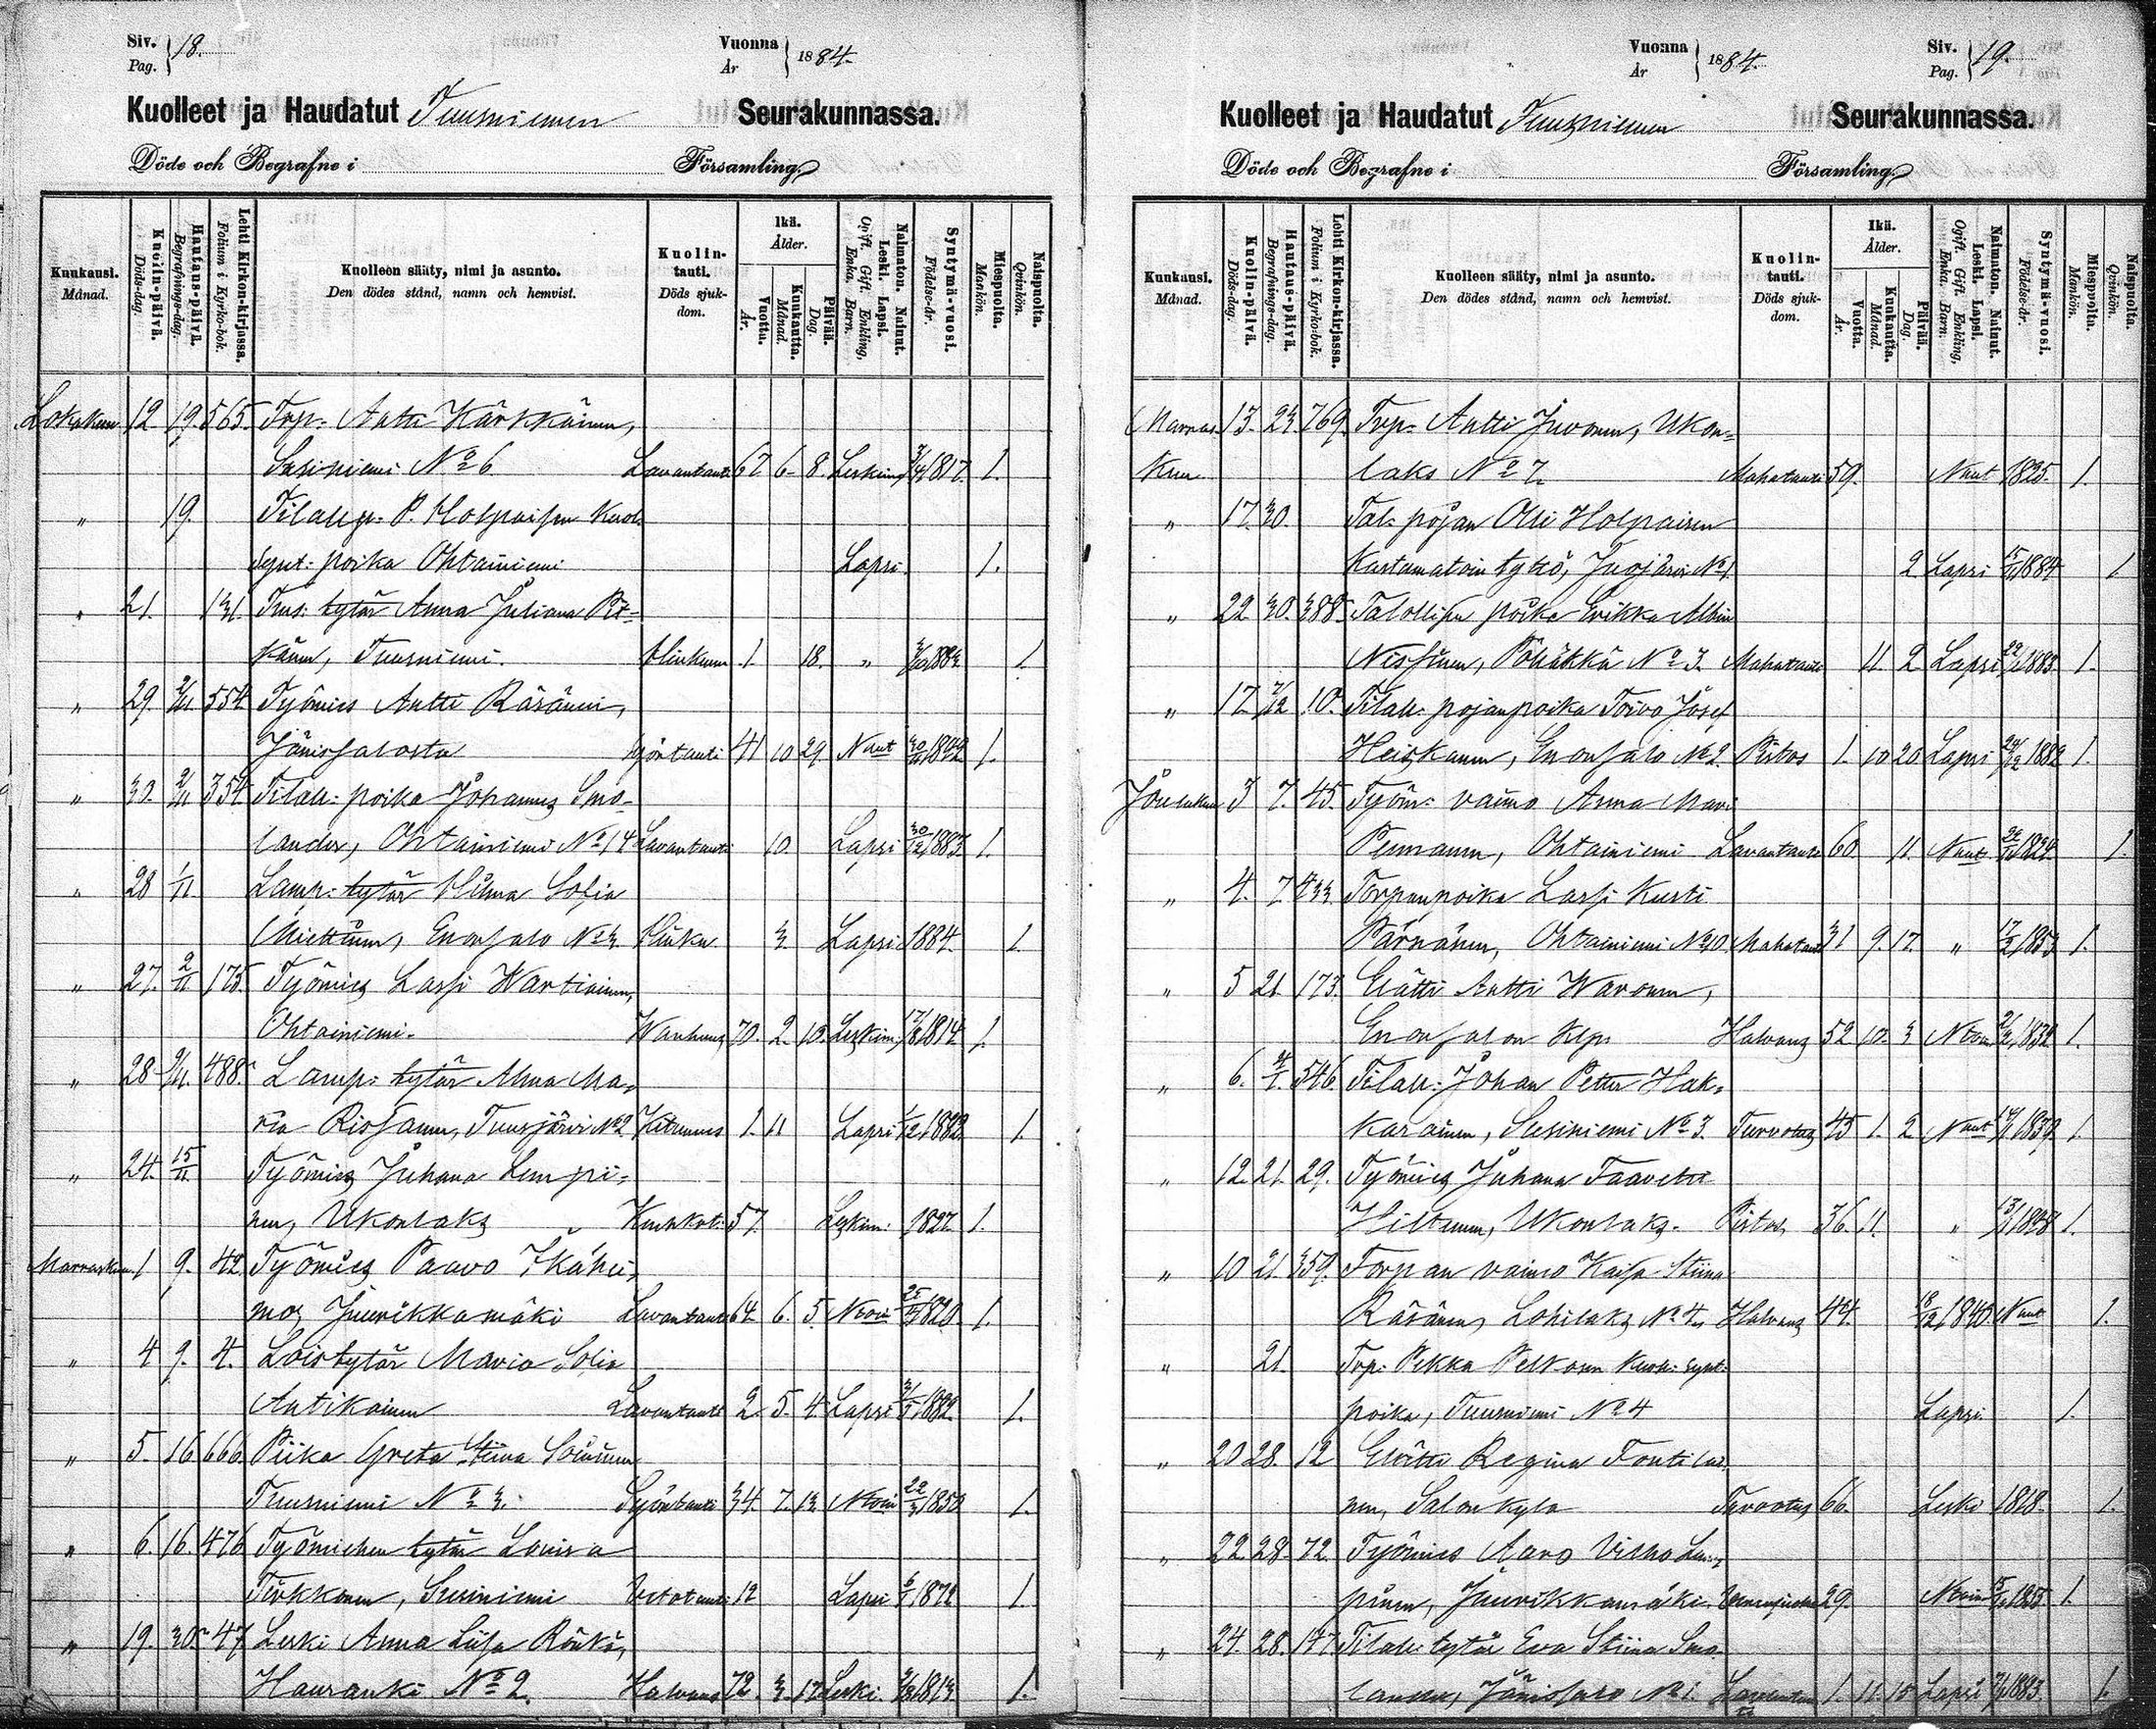 Siv. Pag. 18.
Vuonna År 1884.
Kuolleet ja Haudatut Tuusniemen Seurakunnassa.
Döde och Begrafne i Församling.
Kuukausi. Månad.
Kuolin-päivä. Döds-dag.
Hautaus-päivä. Begrafnings-dag.
Lehti Kirkon-kirjassa. Folium i Kyrko-bok.
Kuolleen sääty, nimi ja asunto. Den dödes stånd, namn och hemvist.
Kuolin-tauti. Döds sjuk-dom.
Ikä. Ålder.
Vuotta. År.
Kuukautta. Månad.
Päivää. Dag.
Naimaton. Nainut. Leski. Lapsi. Ogift. Gift. Enkling, Enka. Barn.
Syntymä-vuosi. Födelse-år.
Miespuolta. Mankön.
Naispuolta. Qvinkön.
Lokakuu 12 19. 565. Torp: Antti Kärkkäinen,
Susiniemi No 6 Lavantauti 67 6 8. Leskimies 1817. 1.
" 19. Tilallis: P. Holopaisen kuol.
synt: poika Ohtainiemi Lapsi. 1.
" 21. 131. Tuus: tytär Anna Juliana Pit-
känen, Tuusniemi. 1. 18. " 1883. 1.
" 29. 2/11 554 Työmies Antti Räsänen,
Jänissalosta Syöntauti 41 10 29. Naut 1842 1.
" 30. 2/11 354 Tilall: poika Johannes Smo-
lander, Ohtainiemi No 14 Lavantauti 10. Lapsi 30/12 1883. 1.
" 28 1/11 Lamp: tytär Hilma Sofia
Miettinen, Enonsalo No 3. Hinku 3. Lapsi 1884. 1.
" 27. 2/11 175. Työmies Lassi Wartiainen,
Ohtainiemi. Wanhuus 70. 2. 10. Leskim. 17/8 1814 1.
" 28 2/11. 488. Lamp: tytär Alma Ma-
ria Rissanen, Tuusjärvi No 2 Kitumus 1. 11 Lapsi 1/12 1882. 1.
" 24. 15/11 Työmies Juhana Lempi-
nen, Ukonlaks 57. Leskim: 1827. 1.
Marraskuu 1 9. 42. Työmies Paavo Ikähei-
mo, Juurikkamäki Lavantauti 64 6. 5. Naim 1820. 1.
" 4 9. 4. Loistytär Maria Sofia
Antikainen Lavantauti 2. 5. 4 Lapsi 1882. 1.
" 5. 16 666. Piika Greta Stiina Soininen
Tuusniemi No 3. Syöntauti 34 7. 13. Naim 22/3 1850 1.
" 6. 16. 476 Työmiehen tytär Lovisa
Tirkkonen, Susiniemi Vetotauti 12 Lapsi 1872 1.
" 19. 30. 47 Leski Anna Liisa Rönkä,
Hauranki No 2. Halvaus 72. 3. 17. Leski. 1813. 1.
Vuonna År 1884.
Siv. Pag. 19.
Kuolleet ja Haudatut Tuusniemen Seurakunnassa.
Döde och Begrafne i Församling.
Kuukausi. Månad.
Kuolin-päivä. Döds-dag.
Hautaus-päivä. Begrafnings-dag.
Lehti Kirkon-kirjassa. Folium i Kyrko-bok.
Kuolleen sääty, nimi ja asunto. Den dödes stånd, namn och hemvist.
Kuolin-tauti. Döds sjuk-dom.
Ikä. Ålder.
Vuotta. År.
Kuukautta. Månad.
Päivää. Dag.
Naimaton. Nainut. Leski. Lapsi. Ogift. Gift. Enkling, Enka. Barn.
Syntymä-vuosi. Födelse-år.
Miespuolta. Mankön.
Naispuolta. Qvinkön.
Marras- 13. 23. 769. Torp: Antti Juvonen, Ukon-
Kuu laks No 7. Mahatauti 59. Naut 1825. 1.
" 17. 30. Tal: pojan Olli Holopaisen
Kastamatoin tyttö, Juojärvi No 1. 2 Lapsi 15/11 1884 1
" 22. 30. 388. Talollisen poika Erikka Albin
Nissinen, Pöhäkkä No 3. Mahatauti 11 2. Lapsi 1883. 1.
" 17. 7/12 10. Tilall: pojanpoika Toivo Josef
Heiskanen, Enonsalo No 2. Pistos 1. 10 20 Lapsi 1882 1.
Joulukuu 3 7. 45. Työm: vaimo Anna Mari
Pennanen, Ohtainiemi Lavantauti 60. 11. Naut 1824. 1.
" 4. 7. 433 Torpanpoika Lassi Kusti
Pärnänen, Ohtainiemi No 10. Mahataut 31 9. 17. " 17/2 1853 1.
" 5 21. 173. Elätti Antti Waronen,
Enonsalon kyl. Halvaus 52 10. 3 Naim 1832. 1.
" 6. 546. Tilall: Johan Petter Hak-
karainen, Susiniemi No 3. Turvotus 45 1. 2 Naut 1839 1.
" 12. 21. 29. Työmies Juhana Taavetti
Hiltunen, Ukonlaks. Pistos 36. 11. " 1848 1.
" 10 21. 359. Torpan vaimo Kaisa Stiina
Räsänen, Lohilaks No 4. Halvaus 44. 1840. Naut 1.
" 21 Torp: Pekka Pelkosen kuoll: synt:
poika, Tuusniemi No 4 Lapsi. 1.
" 20 28. 12 Elätti Regina Tontilai-
nen, Salonkylä Turvotus 66. Leski 1818. 1.
" 22 28. 72. Työmies Aaro Vilho Lem-
pinen, Juurikkamäki 29. Naim 1855. 1.
" 24. 28. 147. Tilall: tytär Eva Stiina Smo-
lander, Jänissaro No 1. Lavantauti 1. 11. 15 Lapsi 1883. 1.